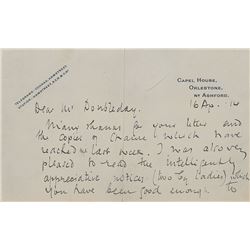 CAPEL HOUSE,
ORLESTONE,
NR ASHFORD.
16 Ap. 14
Dear Mr Doubleday.
Many thanks for your letter and
the copies of Chance which have
reached me last week. I was also very
pleased to read the intelligently
appreciative notices (two by Ladies) which
you have been good enough to